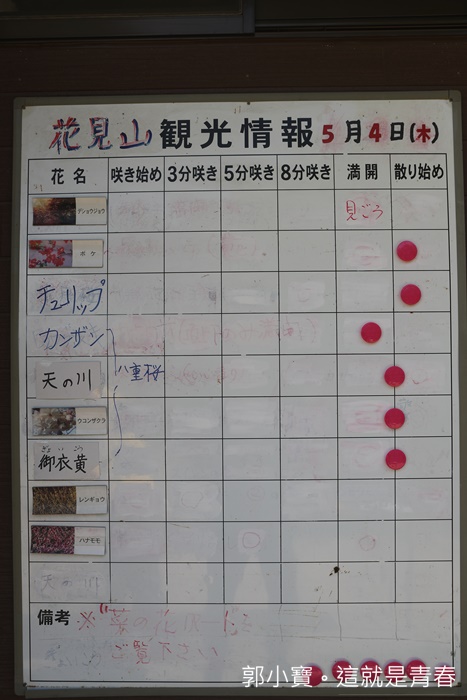 花見山観光情報 5月4日(木)
花名 咲き始め 3分咲き 5分咲き 8分咲き 満開 散り始め
デショウジョウ 見ごろ
ボケ
チューリップ
カンザン
天の川 八重桜
ウコンザクラ
ぎょいこう
御衣黄
レンギョウ
ハナモモ
天の川
備考 ※
ご覧下さい
郭小寶。這就是青春